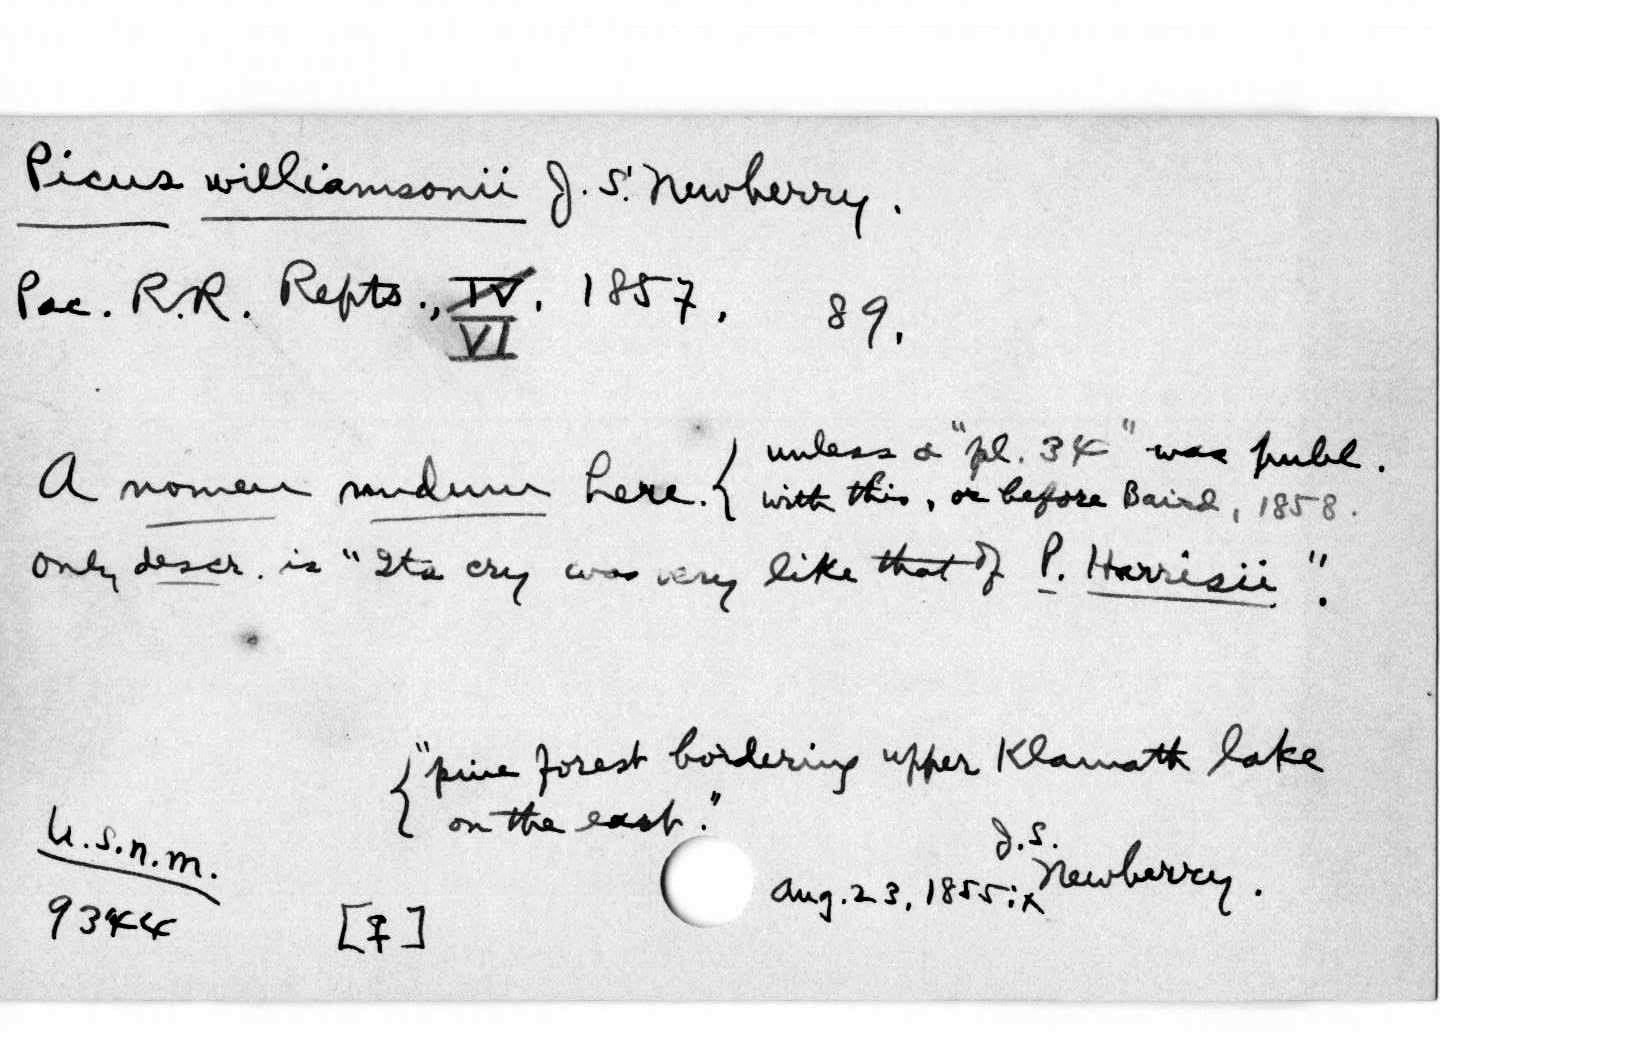 Picus williamsonii J. S. Newberry.
Pac. R.R. Repts., IV, 1857, 89.
VI
A nomen nudum here. { unless a "pl. 34" was publ.
with this, or before Baird, 1858.
Only descr. is "Its cry was very like that of P. Harrisii".
{ "pine forest bordering upper Klamath lake
on the east."
U.S.N.M.
9344
[♀]
Aug. 23, 1855; x J.S. Newberry.